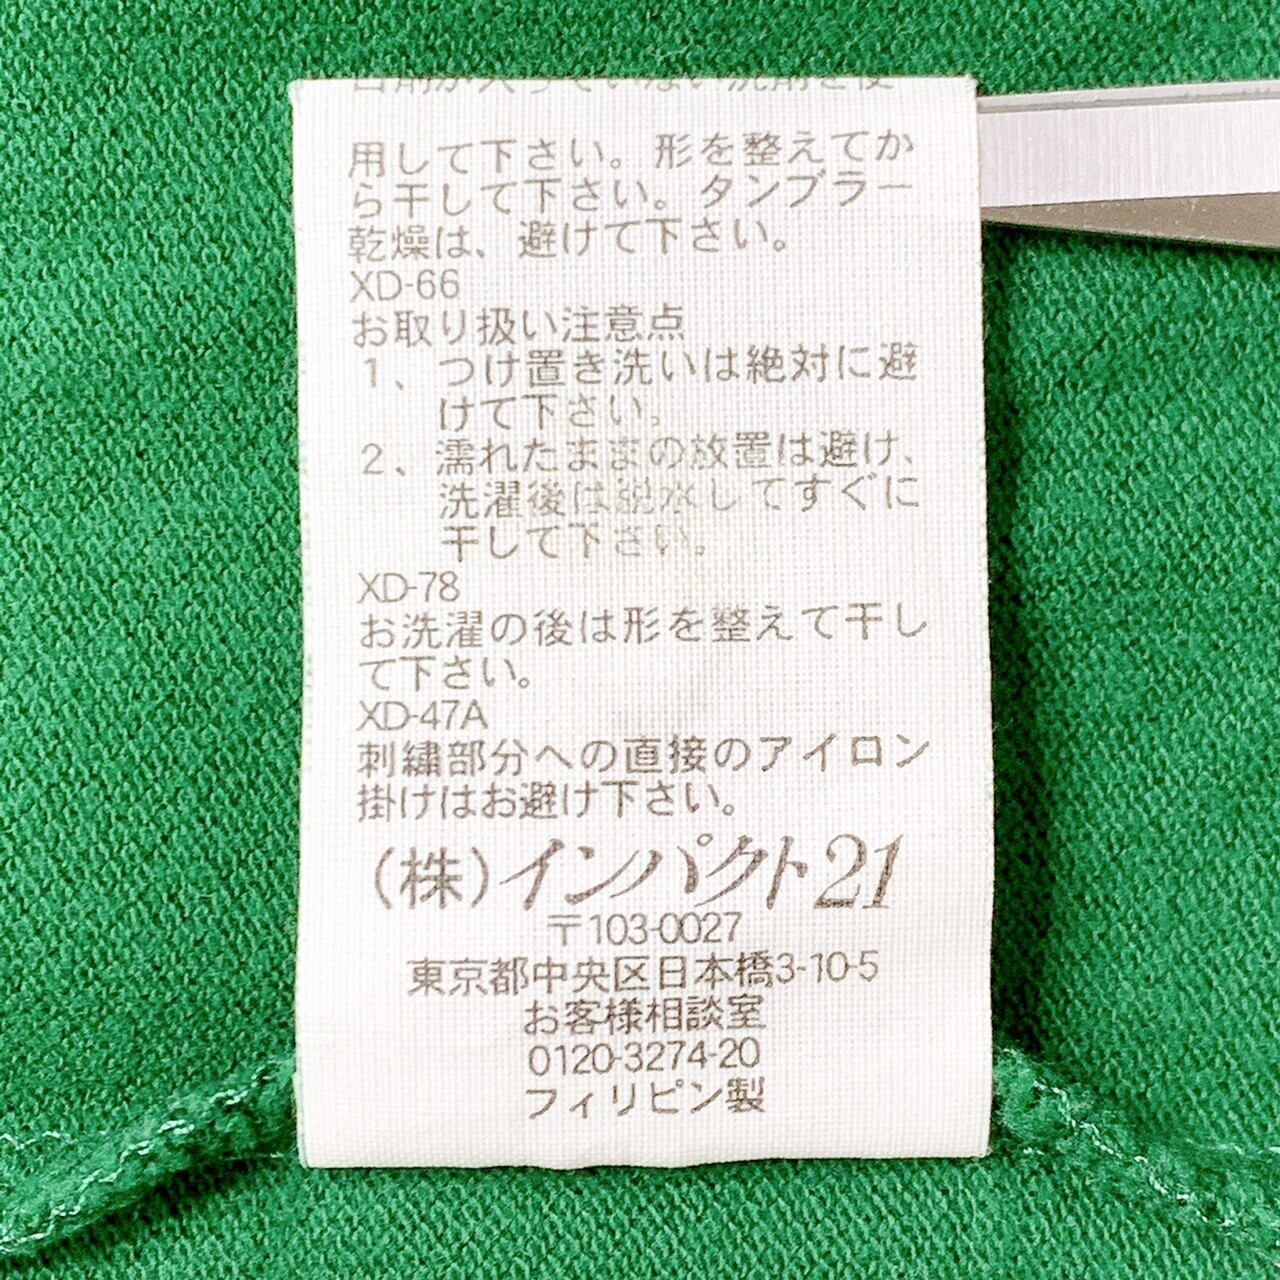 白剤が入っていない洗剤を使
用して下さい。形を整えてか
ら干して下さい。タンブラー
乾燥は、避けて下さい。
XD-66
お取り扱い注意点
1、つけ置き洗いは絶対に避
けて下さい。
2、濡れたままの放置は避け、
洗濯後は脱水してすぐに
干して下さい。
XD-78
お洗濯の後は形を整えて干し
て下さい。
XD-47A
刺繍部分への直接のアイロン
掛けはお避け下さい。
(株)インパクト21
〒103-0027
東京都中央区日本橋3-10-5
お客様相談室
0120-3274-20
フィリピン製